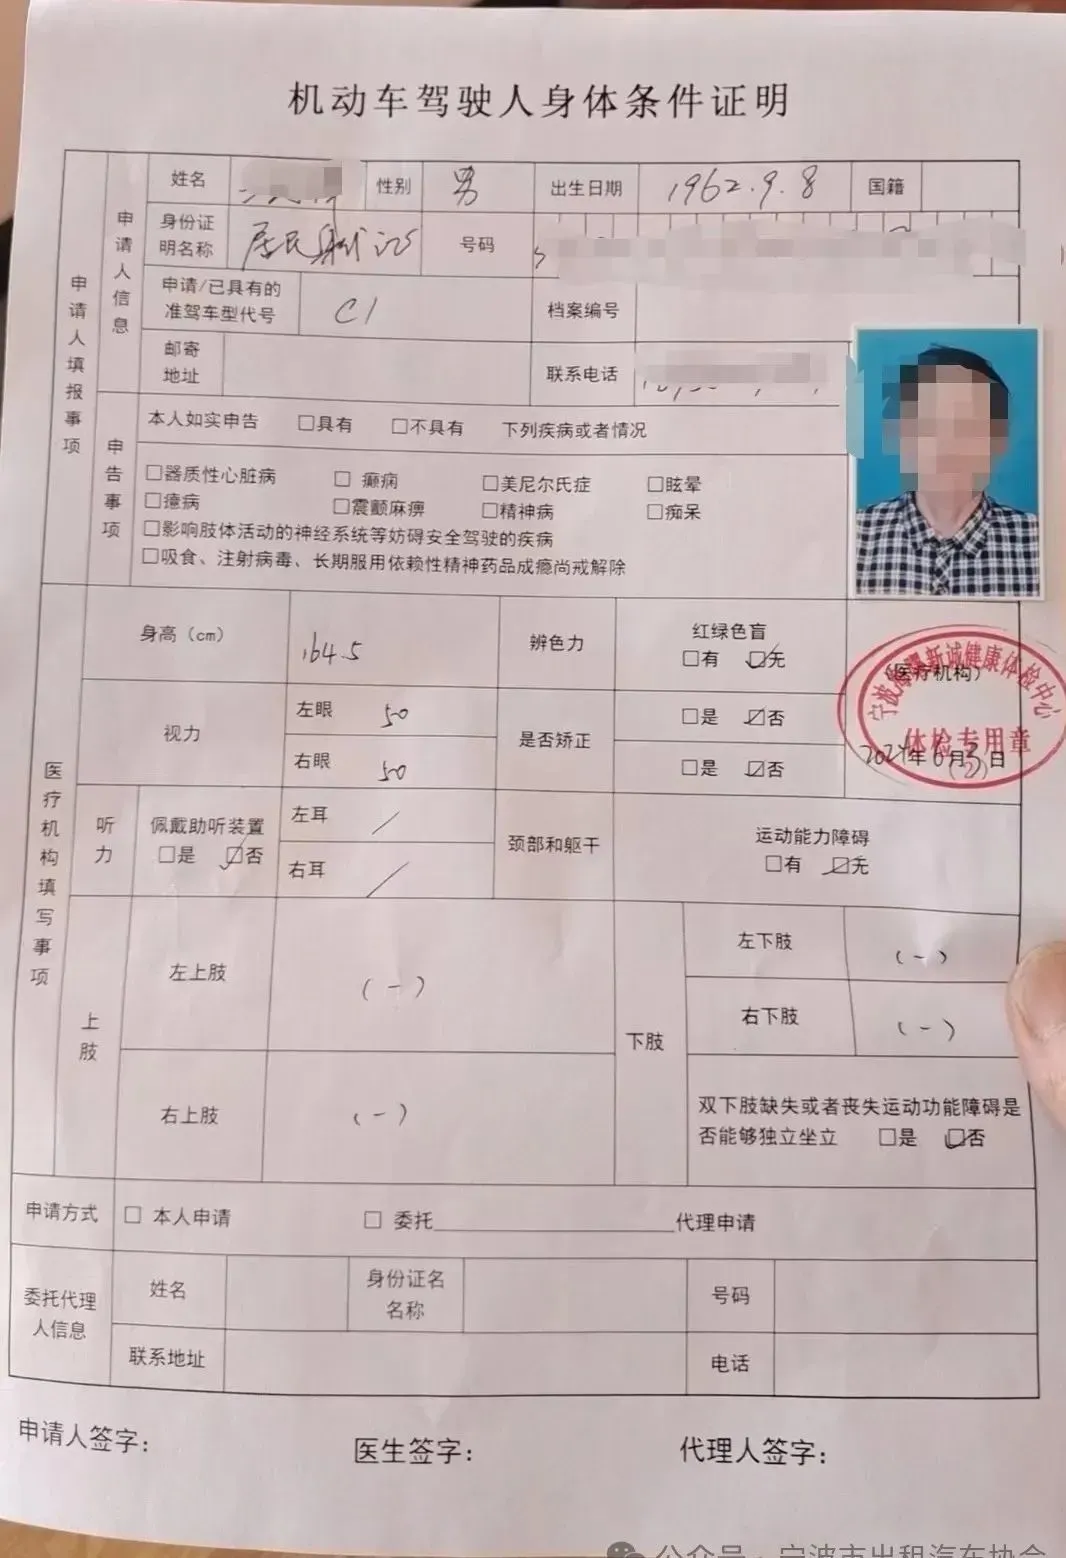 机动车驾驶人身体条件证明
申请人填报事项
申请人信息
姓名 性别 男 出生日期 1962.9.8 国籍
身份证明名称 居民身份证 号码
申请/已具有的准驾车型代号 C1 档案编号
邮寄地址 联系电话
申告事项
本人如实申告 □具有 □不具有 下列疾病或者情况
□器质性心脏病 □癫痫 □美尼尔氏症 □眩晕
□癔病 □震颤麻痹 □精神病 □痴呆
□影响肢体活动的神经系统等妨碍安全驾驶的疾病
□吸食、注射病毒、长期服用依赖性精神药品成瘾尚戒解除
医疗机构填写事项
身高（cm） 164.5 辨色力 红绿色盲
□有 ☑无
视力 左眼 50 是否矫正 □是 ☑否
右眼 50 □是 ☑否
（医疗机构）
新诚健康体检中心
体检专用章
(2)
2024年6月 日
听力 佩戴助听装置 □是 ☑否
左耳 /
右耳 /
颈部和躯干 运动能力障碍
□有 ☑无
上肢 左上肢 (-)
右上肢 (-)
下肢 左下肢 (-)
右下肢 (-)
双下肢缺失或者丧失运动功能障碍是
否能够独立坐立 □是 ☑否
申请方式 □ 本人申请 □ 委托________代理申请
委托代理人信息 姓名 身份证名名称 号码
联系地址 电话
申请人签字： 医生签字： 代理人签字：
公众号·宁波市出租汽车协会